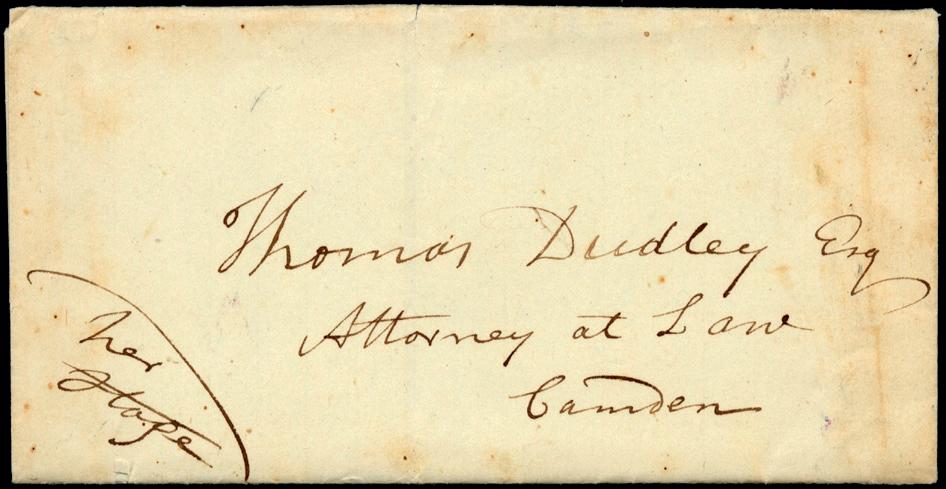 Thomas Dudley Esq
Attorney at Law
Camden
Per
Stage